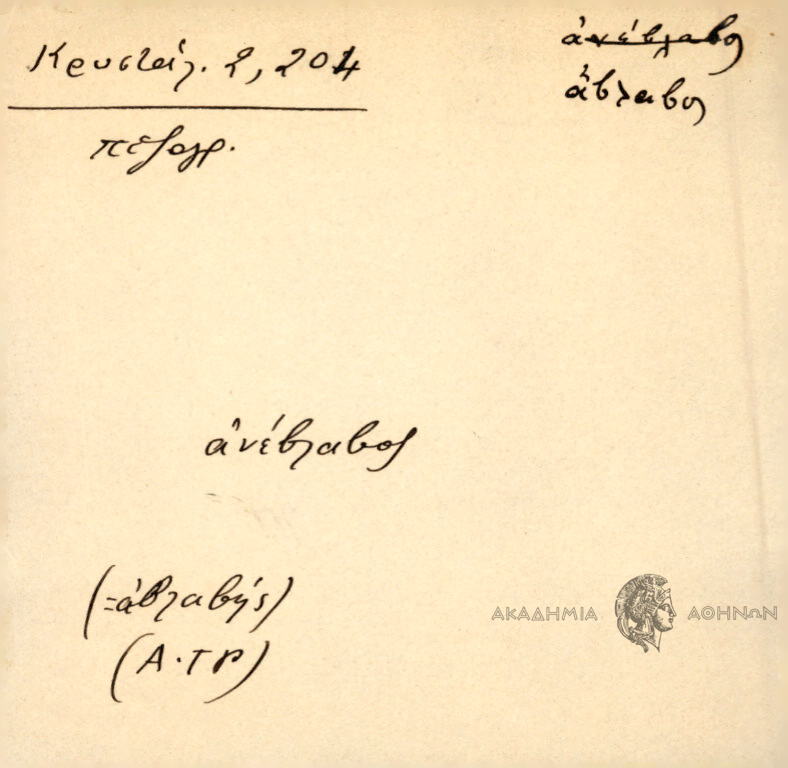 Κρυστάλ. 2, 204
πεζογρ.
ἀνέβλαβος
ἄβλαβος
ἀνέβλαβος
(=ἀβλαβής)
(Α.ΤΡ)
ΑΚΑΔΗΜΙΑ ΑΘΗΝΩΝ